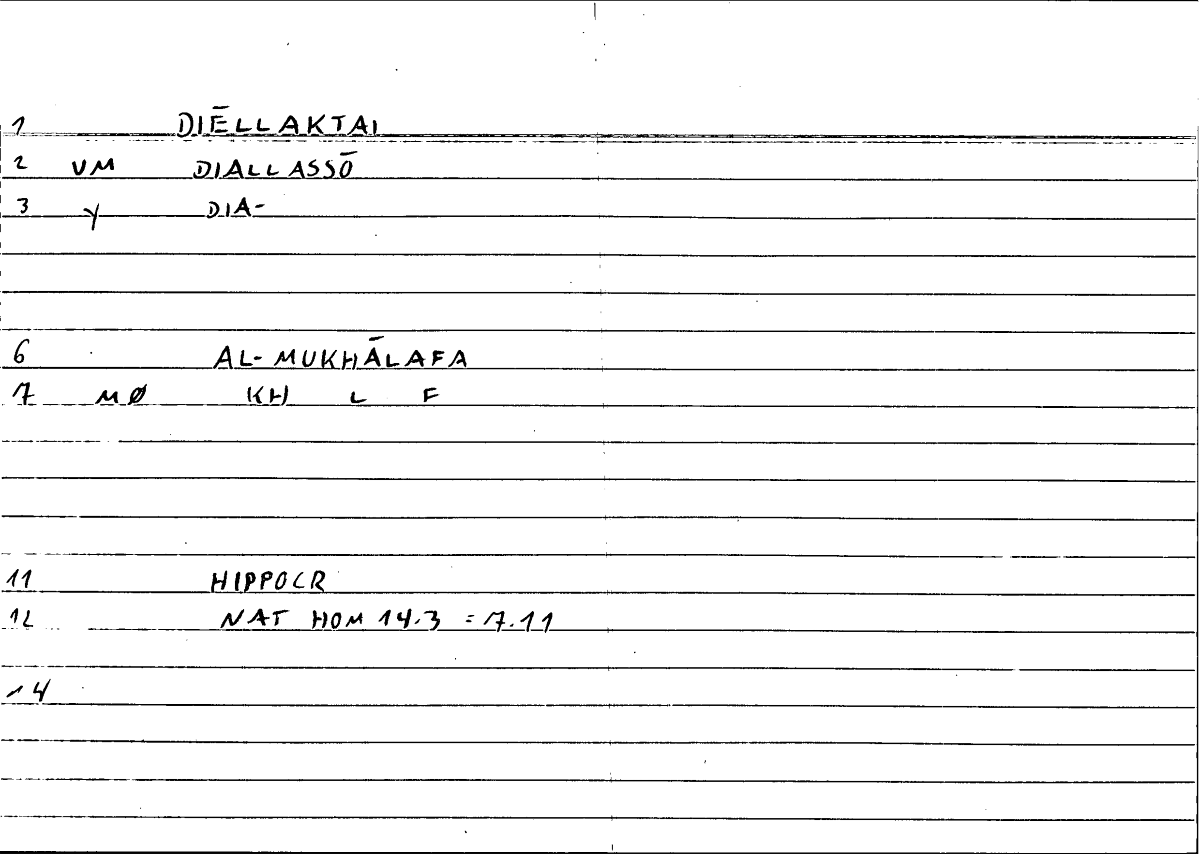 1 DIĒLLAKTAI
2 VM DIALLASSŌ
3 Y DIA-
6 AL-MUKHĀLAFA
7 MØ KH L F
11 HIPPOCR
12 NAT HOM 14.3 = 7.11
14